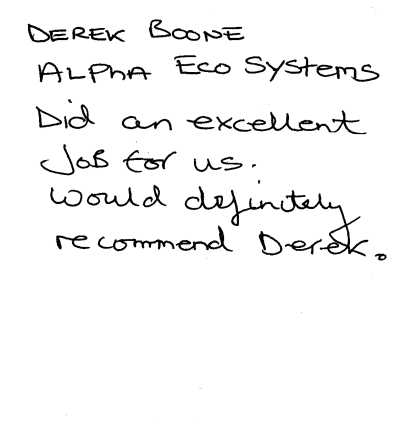 DEREK BOONE
ALPhA Eco Systems
Did an excellent
Job for us.
would definitely
recommend Derek.